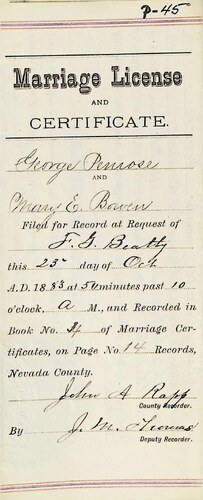 P-45
Marriage License
AND
CERTIFICATE.
George Penrose
AND
Mary E. Bowen
Filed for Record at Request of
F. G. Beatty
this 23d day of Oct
A.D. 1883 at 50 minutes past 10
o'clock, A M., and Recorded in
Book No. 4 of Marriage Cer-
tificates, on Page No. 14 Records,
Nevada County.
John A Rapp
County Recorder.
By J. M. Thomas
Deputy Recorder.